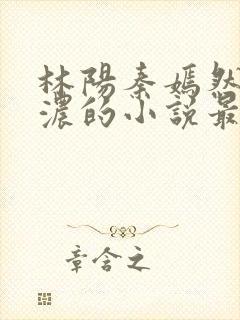 林陽秦嫣然
濃的小說最
章含之